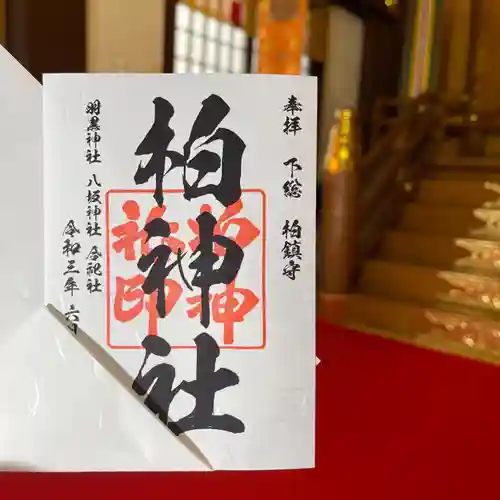 奉拝 下総 柏鎮守
柏神社
羽黒神社 八坂神社 合祀社
令和三年 六